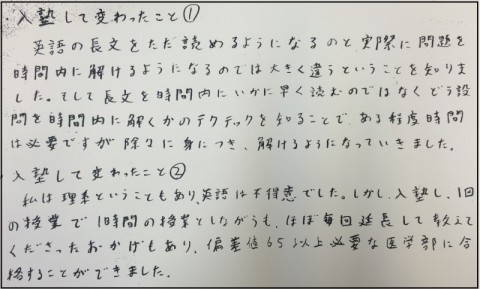 ・入塾して変わったこと①
英語の長文をただ読めるようになるのと、実際に問題を
時間内に解けるようになるのでは大きく違うということを知りま
した。そして長文を時間内にいかに早く読むのではなくどう設
問を時間内に解くかのテクテックを知ることで、ある程度時間
は必要ですが除々に身につき、解けるようになっていきました。
・入塾して変わったこと②
私は理系ということもあり、英語は不得意でした。しかし、入塾し、1回
の授業で1時間の授業としながらも、ほぼ毎回延長して教えて
くださったおかげもあり、偏差値65以上必要な医学部に合
格することができました。